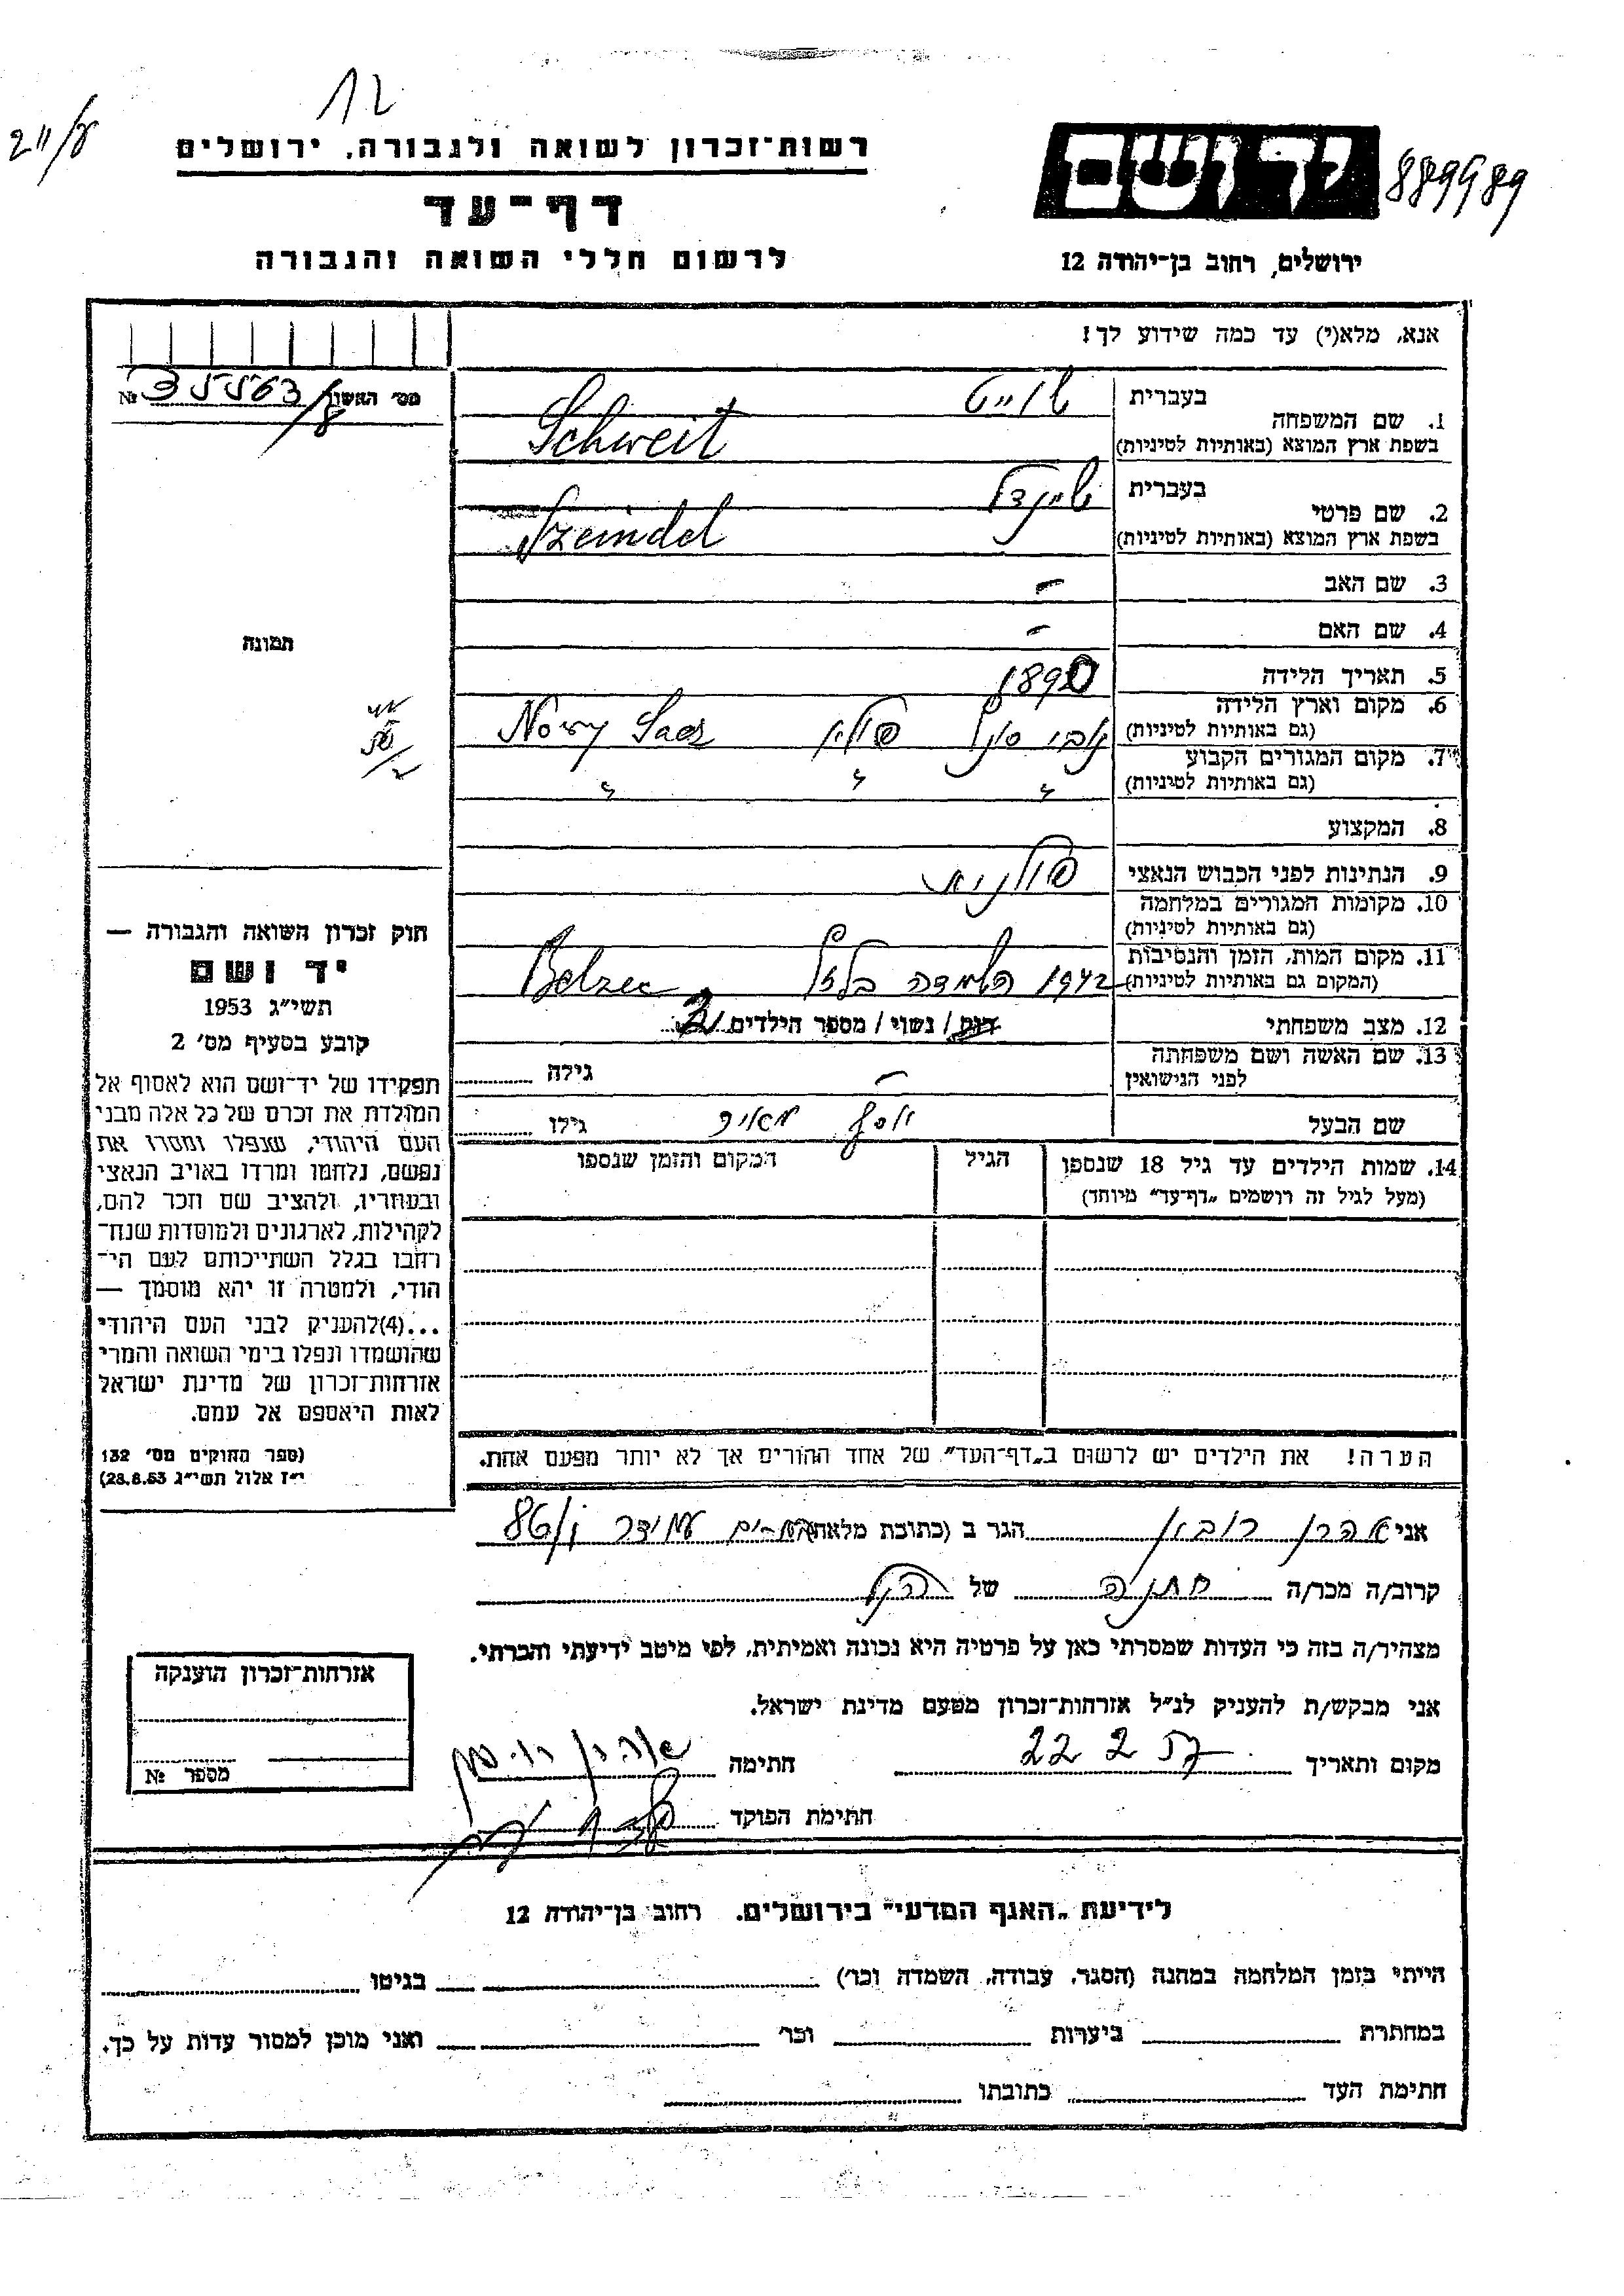 12
רשות־זכרון לשואה ולגבורה, ירושלים
דף־עד
לרשום חללי השואה והגבורה
יד ושם
889989
ירושלים, רחוב בן־יהודה 12
אנא, מלא(י) עד כמה שידוע לך!
מס׳ האשון №
1. שם המשפחה
בעברית שווייט
בשפת ארץ המוצא (באותיות לטיניות) Schweit
2. שם פרטי
בעברית שיינדל
בשפת ארץ המוצא (באותיות לטיניות) Szeindel
3. שם האב –
4. שם האם –
תמונה
5. תאריך הלידה 1890
6. מקום וארץ הלידה
(גם באותיות לטיניות) פולין Nowy Sacz
7. מקום המגורים הקבוע
(גם באותיות לטיניות) " " "
8. המקצוע
9. הנתינות לפני הכבוש הנאצי פולנית
10. מקומות המגורים במלחמה
(גם באותיות לטיניות)
11. מקום המות, הזמן והנסיבות
(המקום גם באותיות לטיניות) 1942 השמדה Belzec
12. מצב משפחתי רווק / נשוי / מספר הילדים
13. שם האשה ושם משפחתה
לפני הנישואין – גילה
שם הבעל יוסף מאיר גילו
14. שמות הילדים עד גיל 18 שנספו
(מעל לגיל זה רושמים „דף־עד״ מיוחד)
הגיל
המקום והזמן שנספו
הערה! את הילדים יש לרשום ב„דף־העד״ של אחד ההורים אך לא יותר מפעם אחת.
חוק זכרון השואה והגבורה —
יד ושם
תשי״ג 1953
קובע בסעיף מס׳ 2
תפקידו של יד־ושם הוא לאסוף אל
המולדת את זכרם של כל אלה מבני
העם היהודי, שנפלו ומסרו את
נפשם, נלחמו ומרדו באויב הנאצי
ובעוזריו, ולהציב שם וזכר להם,
לקהילות, לארגונים ולמוסדות שנח־
רחבו בגלל השתייכותם לעם הי־
הודי, ולמטרה זו יהא מוסמך —
...(4)להעניק לבני העם היהודי
שהושמדו ונפלו בימי השואה והמרי
אזרחות־זכרון של מדינת ישראל
לאות היאספם אל עמם.
(ספר החוקים מס׳ 132
י״ז אלול תשי״ג 28.8.53)
אני אהרן הגר ב (כתובת מלאה) 86
קרוב/ה מכר/ה של
מצהיר/ה בזה כי העדות שמסרתי כאן על פרטיה היא נכונה ואמיתית, לפי מיטב ידיעתי והכרתי.
אני מבקש/ת להעניק לנ״ל אזרחות־זכרון מטעם מדינת ישראל.
מקום ותאריך 22 2 57 חתימה
חתימת הפוקד
אזרחות־זכרון הוענקה
מספר №
לידיעת „האגף המדעי״ בירושלים. רחוב בן־יהודה 12
הייתי בזמן המלחמה במחנה (הסגר, עבודה, השמדה וכו׳) בגיטו
במחתרת ביערות וכו׳ ואני מוכן למסור עדות על כך.
חתימת העד כתובתו